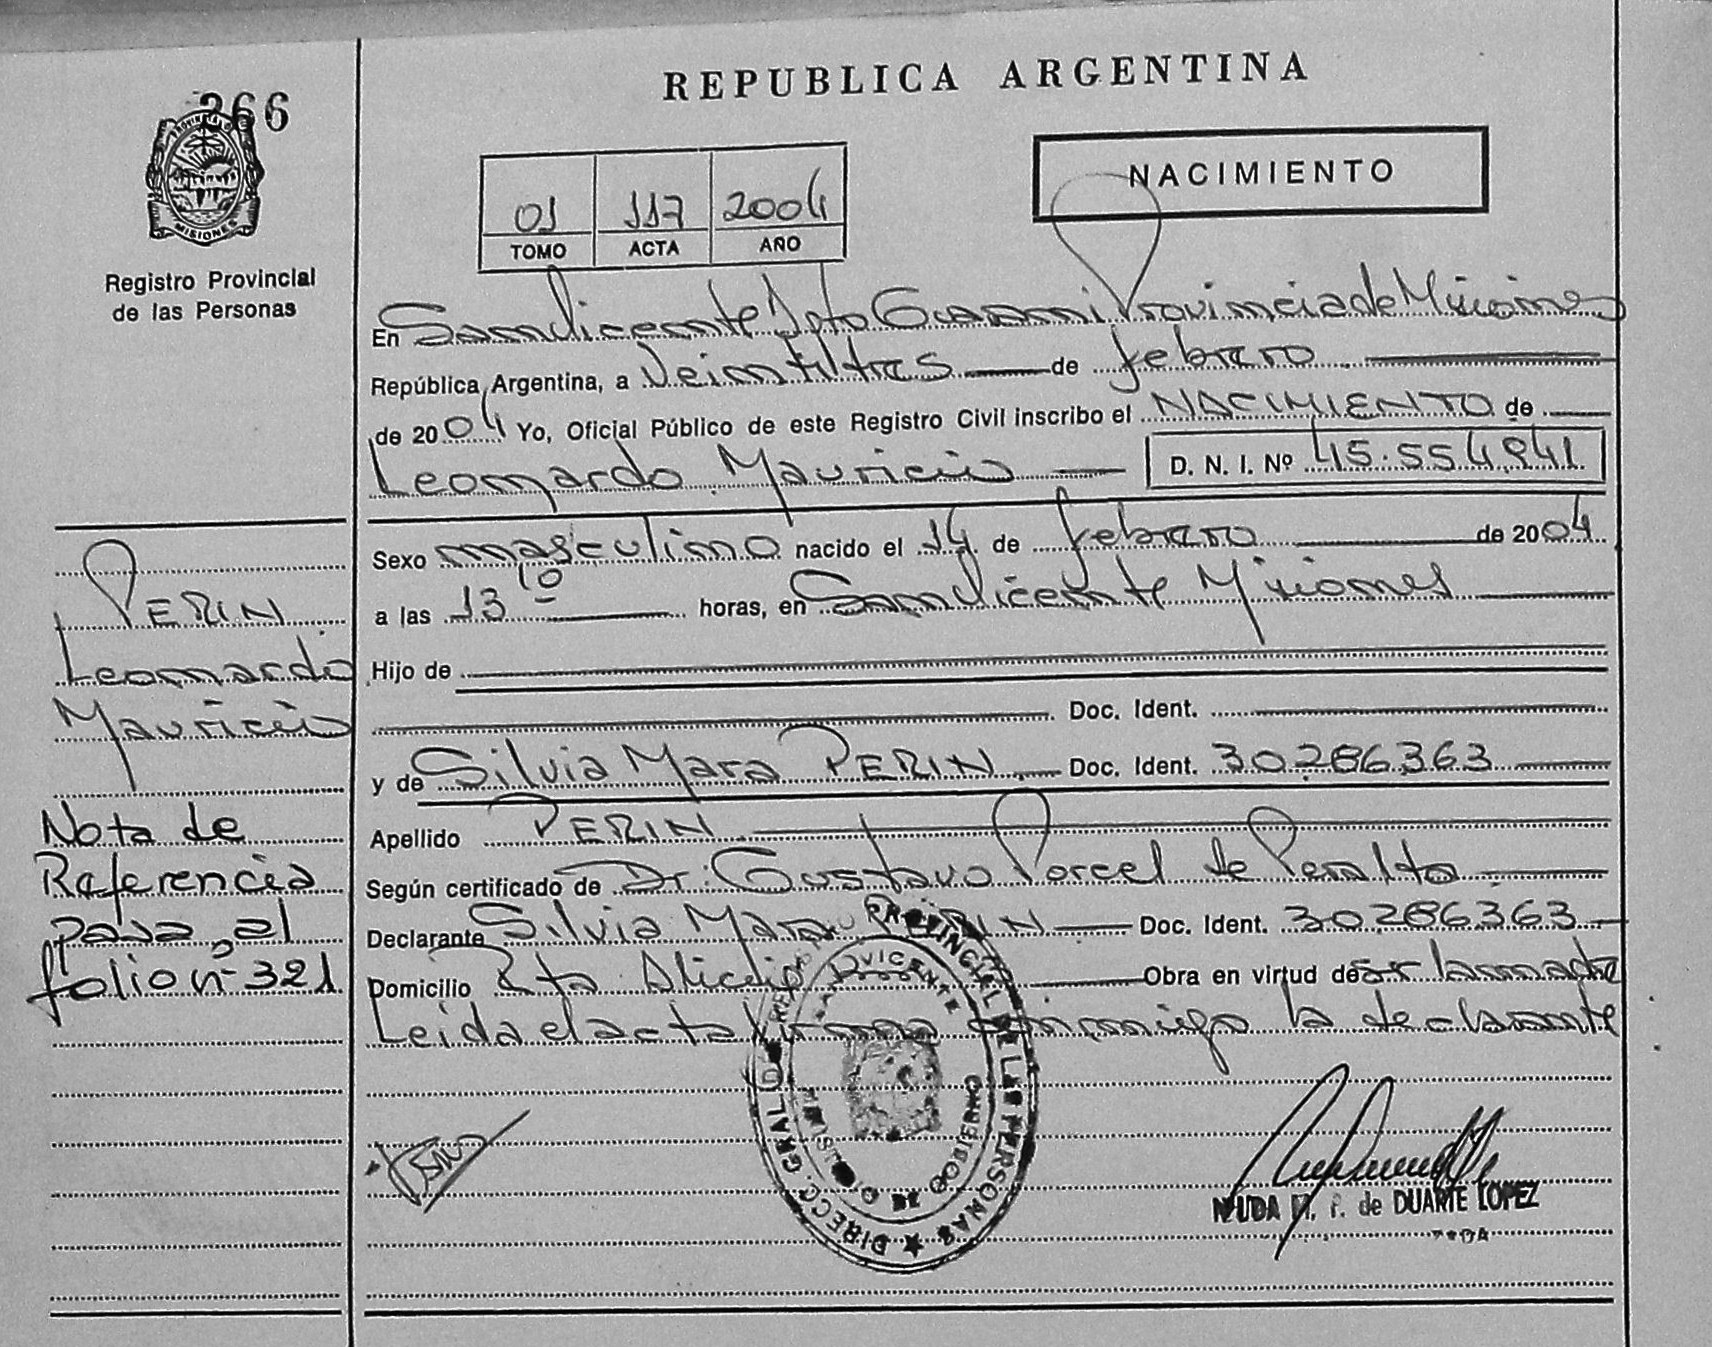 REPUBLICA ARGENTINA
366
PROVINCIA DE
MISIONES
Registro Provincial
de las Personas
01 117 2004
TOMO ACTA AÑO
NACIMIENTO
En San Vicente Dpto Guarani Provincia de Misiones
República Argentina, a Veintitres de febrero
de 2004 Yo, Oficial Público de este Registro Civil inscribo el NACIMIENTO de
Leonardo Mauricio D. N. I. Nº 45.554.841
Sexo masculino nacido el 14 de febrero de 2004
a las 13 10 horas, en San Vicente Misiones
Hijo de
Doc. Ident.
y de Silvia Mara PERIN Doc. Ident. 30.286.363
Apellido PERIN
Según certificado de Dr. Gustavo Porcel de Peralta
Declarante Silvia Mara PERIN Doc. Ident. 30.286.363
Domicilio Pto Obra en virtud de ser la madre
Leida el acta firma conmigo la declarante
PERIN
Leonardo
Mauricio
Nota de
Referencia
pasa al
folio nº 321
DIRECC. GRAL. DEL REG. PROVINCIAL DE LAS PERSONAS
SAN VICENTE
MISIONES
M. P. de DUARTE LOPEZ